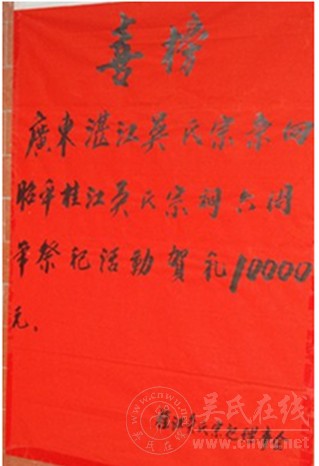 喜榜
廣東湛江吳氏宗親回
昭平桂江吳氏宗祠六周
年祭祀活動賀礼10000
元.
桂江吳氏宗祠理事会
吴氏在线
www.cnwu.net